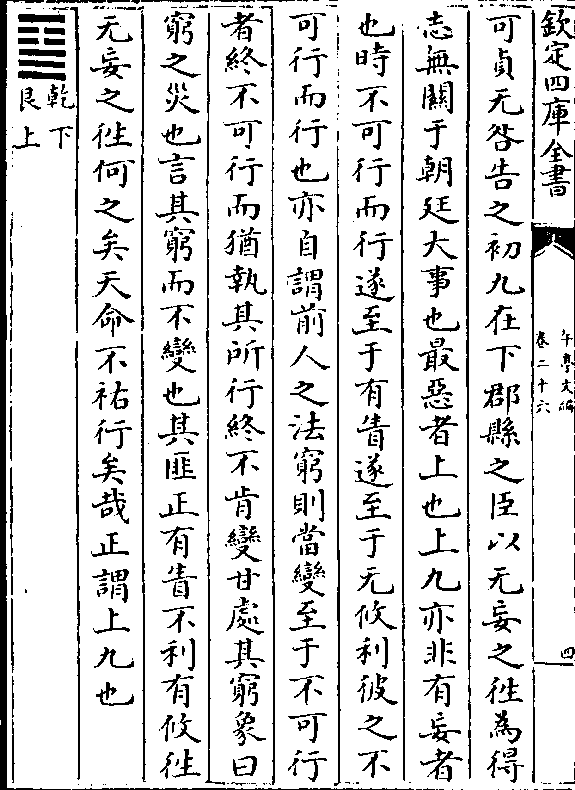 欽定四庫全書
卷二十六
四
可貞无咎告之初九在下郡縣之臣以无妄之徃為得
志無關于朝廷大事也最惡者上也上九亦非有妄者
也時不可行而行遂至于有眚遂至于无攸利彼之不
可行而行也亦自謂前人之法窮則當變至于不可行
者終不可行而猶執其所行終不肯變甘處其窮象曰
窮之災也言其窮而不變也其匪正有眚不利有攸徃
无妄之徃何之矣天命不祐行矣哉正謂上九也
䷙乾下
艮上